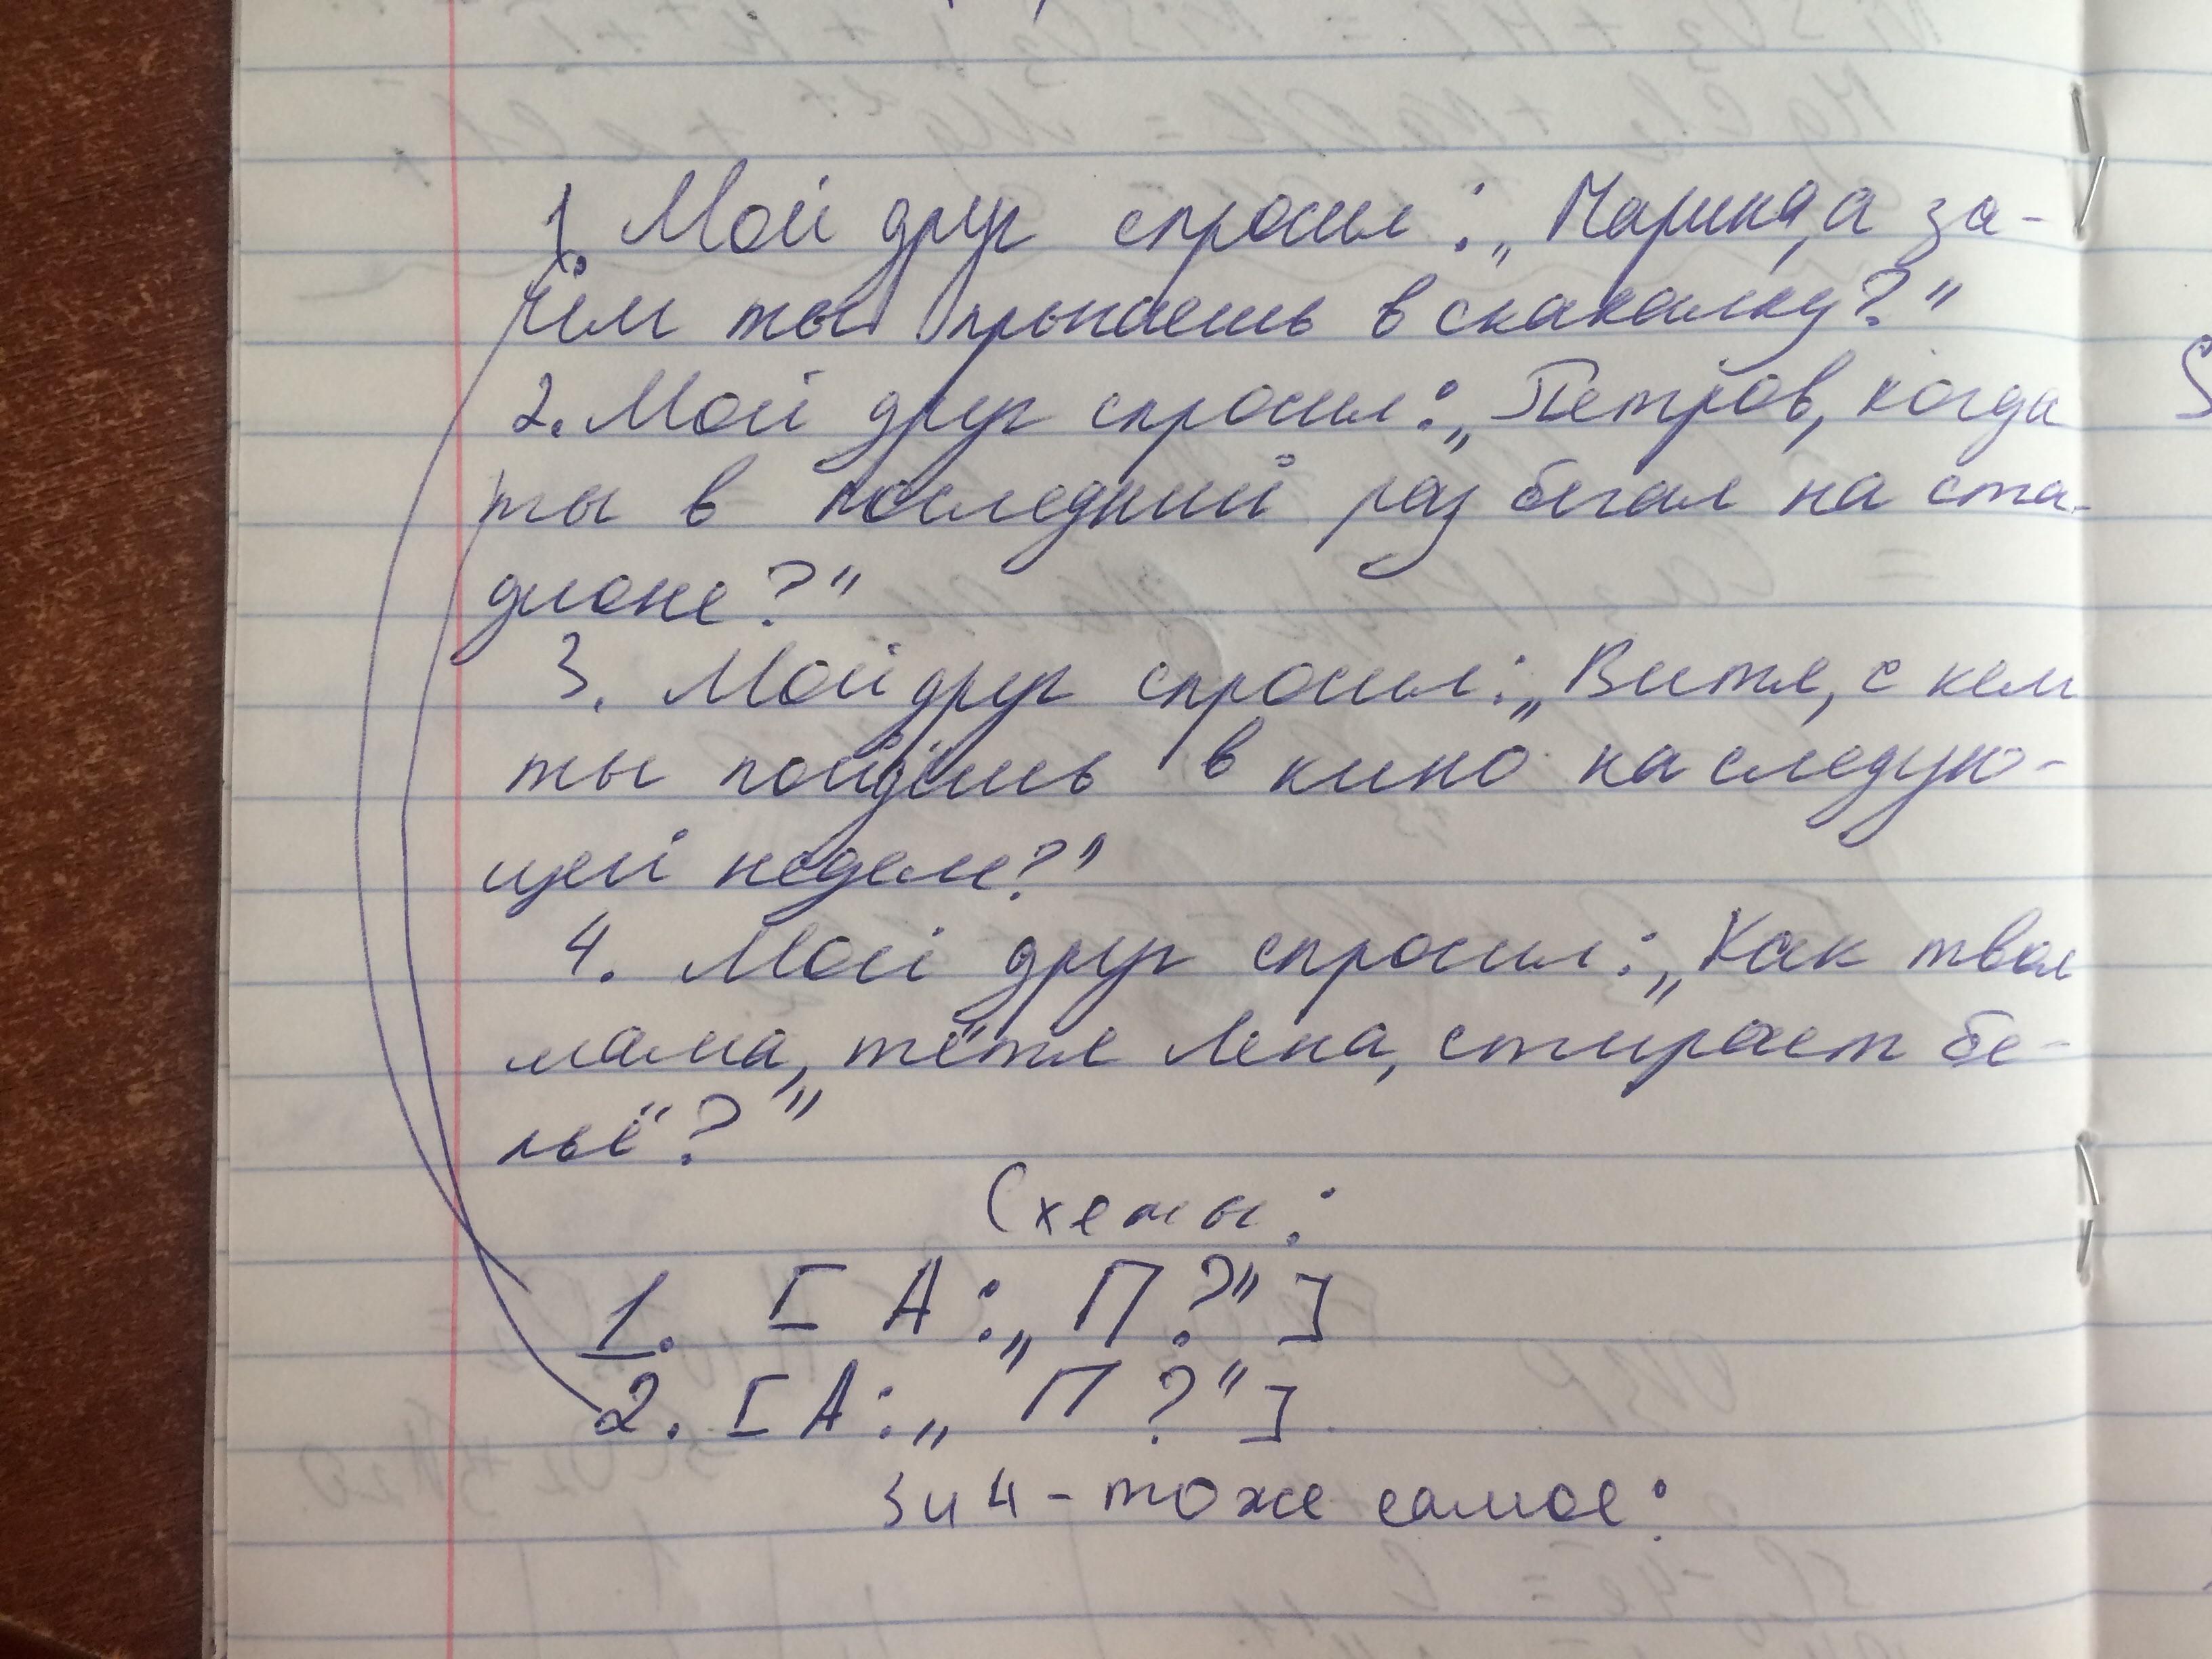 1. Мой друг спросил: „Марина, а за-
чем ты прыгаешь в скакалку?"
2. Мой друг спросил: „Петров, когда
ты в последний раз бегал на ста-
дионе?"
3. Мой друг спросил: „Витя, с кем
ты пойдёшь в кино на следую-
щей неделе?"
4. Мой друг спросил: „Как твоя
мама, тётя Лена, стирает бе-
льё?"
Схемы:
1. [ А: „ П ?" ]
2. [ А: „ П ?" ]
3 и 4 - тоже самое: